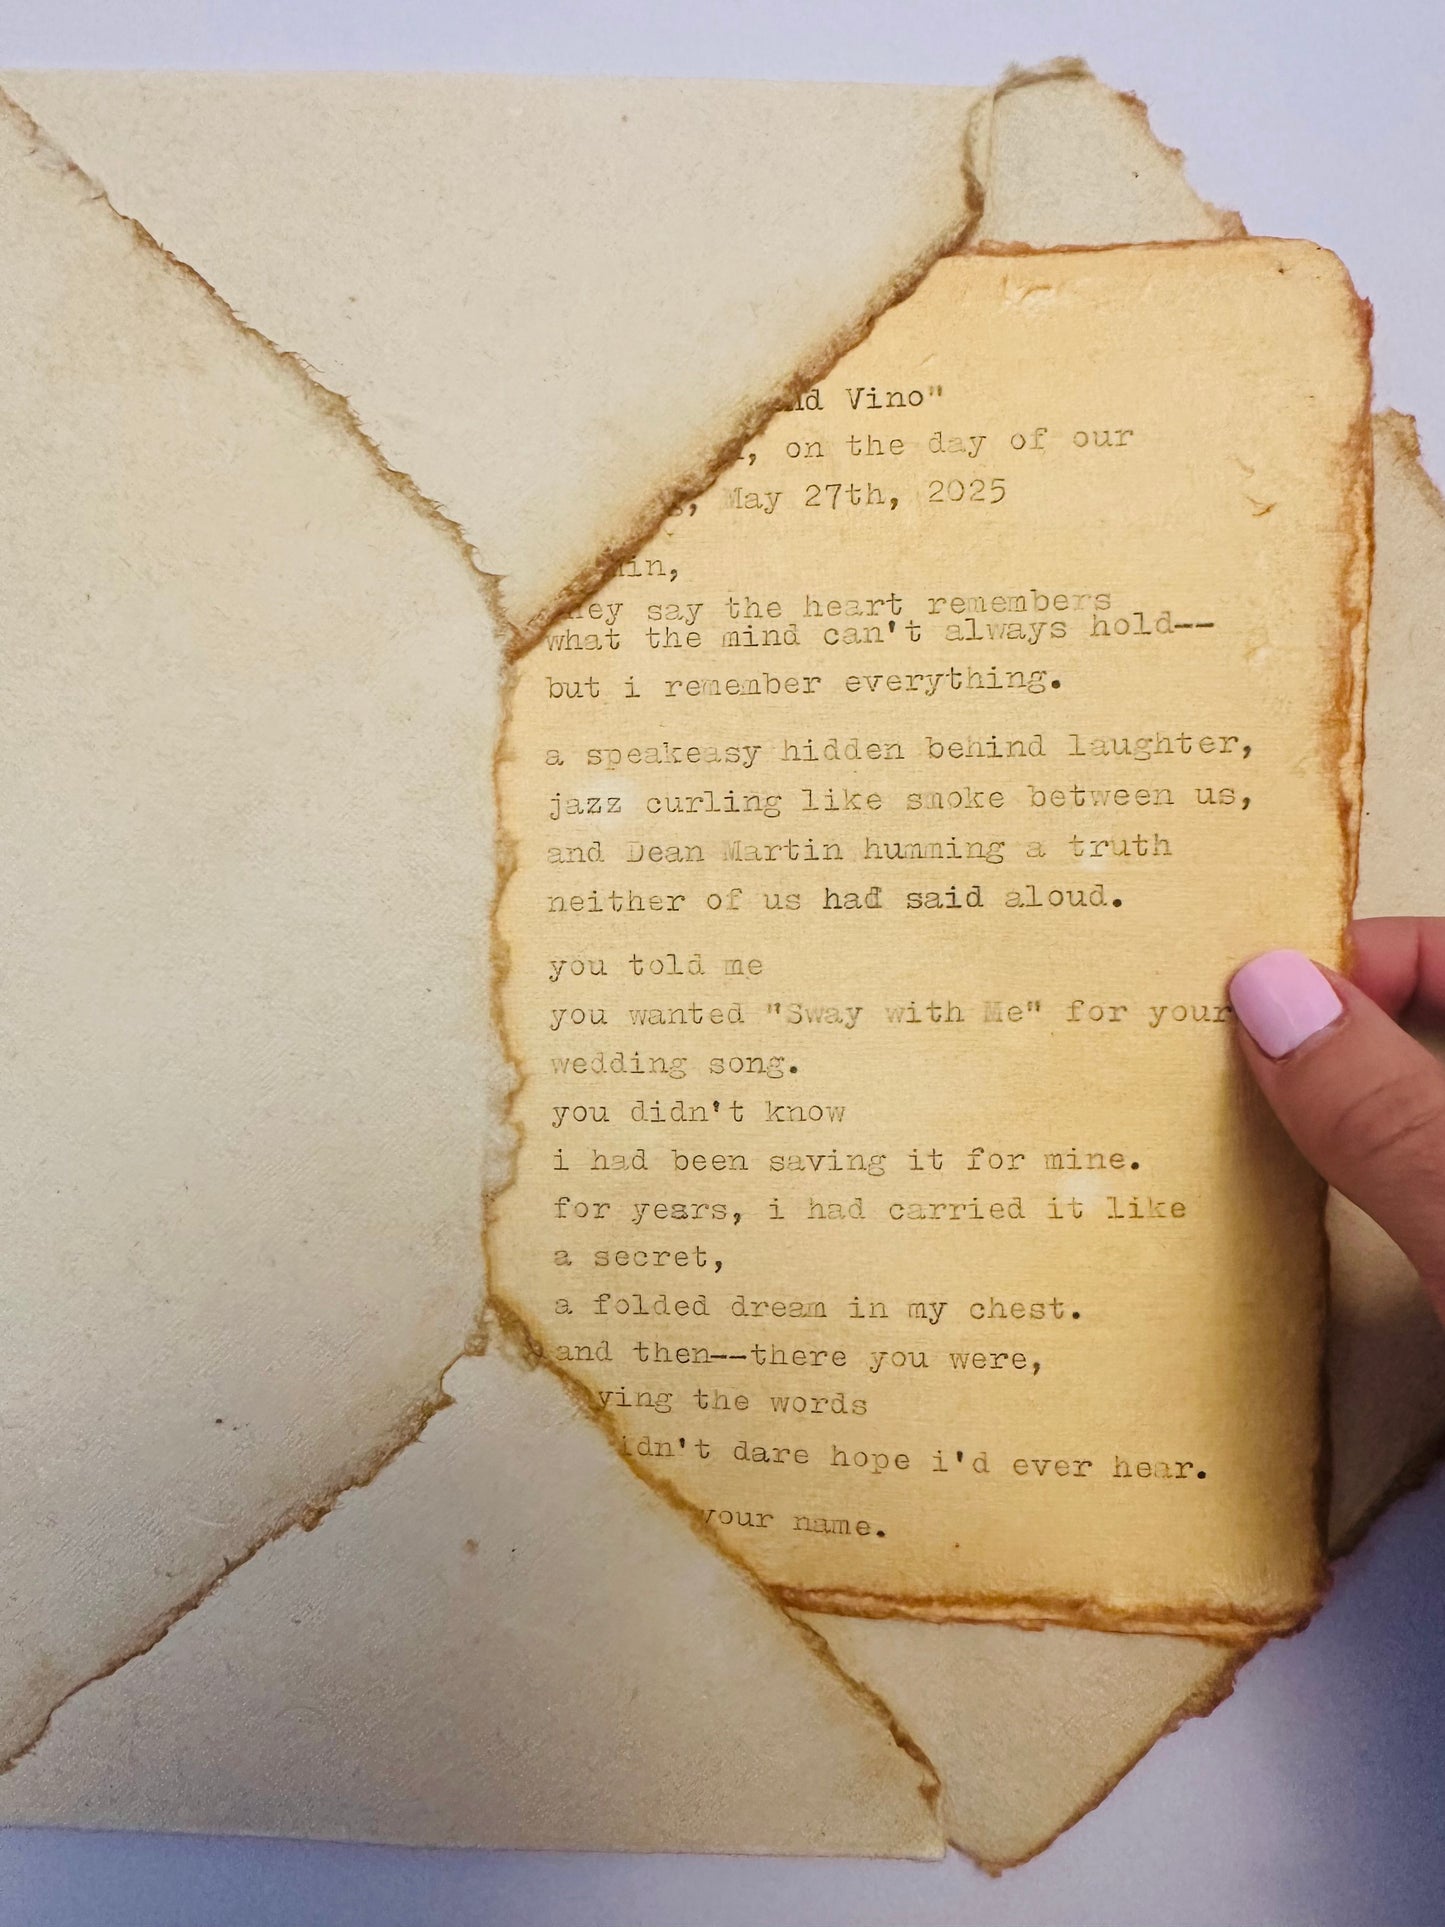 Vino"
on the day of our
May 27th, 2025
say the heart remembers
what the mind can't always hold--
but i remember everything.
a speakeasy hidden behind laughter,
jazz curling like smoke between us,
and Dean Martin humming a truth
neither of us had said aloud.
you told me
you wanted "Sway with Me" for your
wedding song.
you didn't know
i had been saving it for mine.
for years, i had carried it like
a secret,
a folded dream in my chest.
and then--there you were,
the words
dare hope i'd ever hear.
your name.